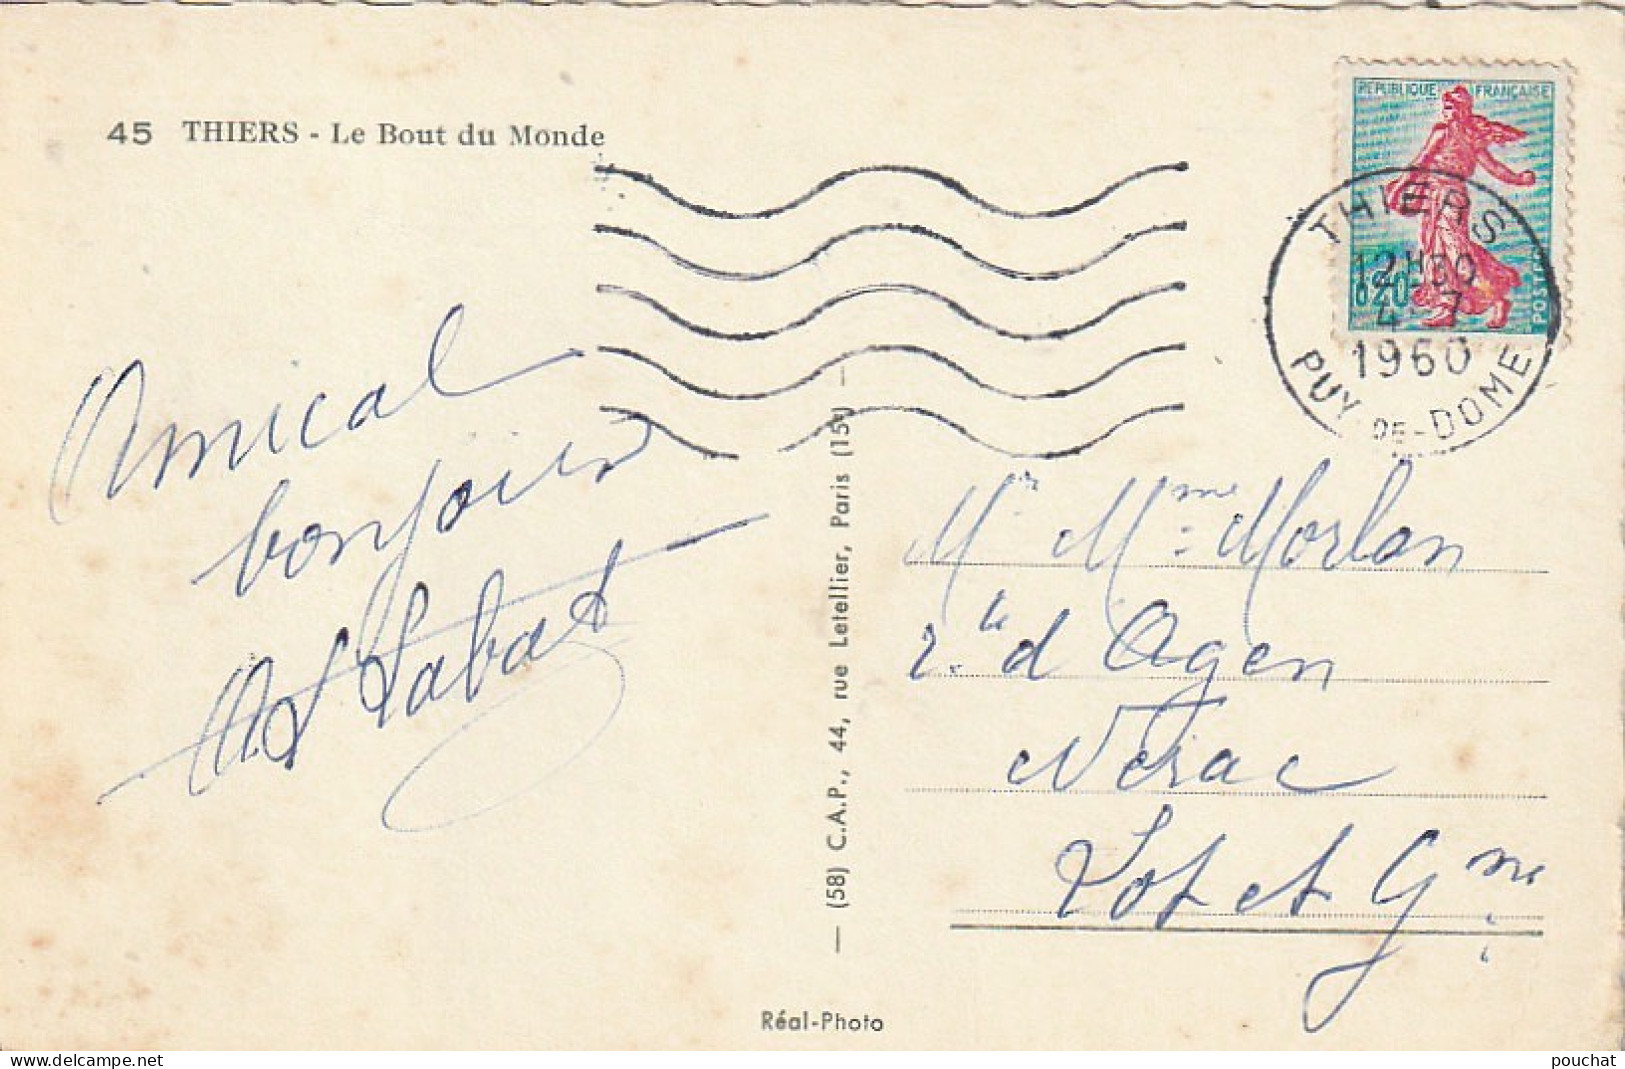 45 THIERS - Le Bout du Monde
RÉPUBLIQUE FRANÇAISE
POSTES
0,20
THIERS
12H30
4-7
1960
PUY-DE-DOME
Amical
bonjour
Labat
(58) C.A.P., 44, rue Letellier, Paris (15e)
Mr Mme Morlan
r. d'Agen
Nérac
Lot et Gne
Réal-Photo
www.delcampe.net
pouchat